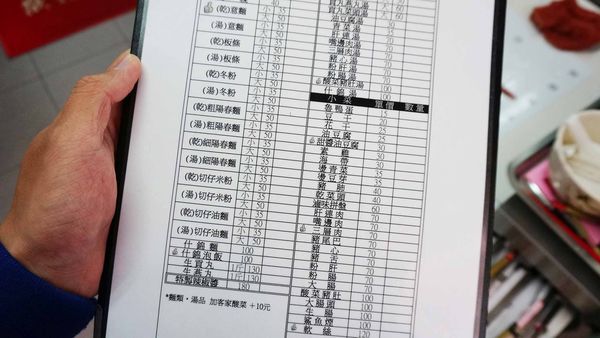 (乾)意麵 小 35
大 50
(湯)意麵 小 35
大 50
(乾)板條 小 35
大 50
(湯)板條 小 35
大 50
(乾)冬粉 小 35
大 50
(湯)冬粉 小 35
大 50
(乾)粗陽春麵 小 35
大 50
(湯)粗陽春麵 小 35
大 50
(乾)細陽春麵 小 35
大 50
(湯)細陽春麵 小 35
大 50
(乾)切仔米粉 小 35
大 50
(湯)切仔米粉 小 35
大 50
(乾)切仔油麵 小 35
大 50
(湯)切仔油麵 小 35
大 50
什錦麵 100
什錦泡飯 100
生貢丸 1斤 130
生燕丸 1斤 130
特製辣椒醬 180
*麵類、湯品 加客家酸菜 +10元
油豆腐湯
肝連湯
嘴邊肉湯
三層肉湯
豬心湯
粉肝湯
粉腸湯
酸菜豬肚湯
什錦湯 100
小菜 單價 數量
魯鴨蛋 15
豆干 20
油豆腐 25
甜醬油豆腐
素雞 30
海帶 30
燙青菜
燙豆芽
豬肺
乾菜頭 40
滷味拼盤 60
肝連肉 70
嘴邊肉 70
三層肉 70
豬尾巴 70
豬心 70
豬舌 70
粉肝 70
粉腸 70
大腸
酸菜豬肚 100
大腸頭 100
生腸 100
鯊魚煙 100
軟絲 120